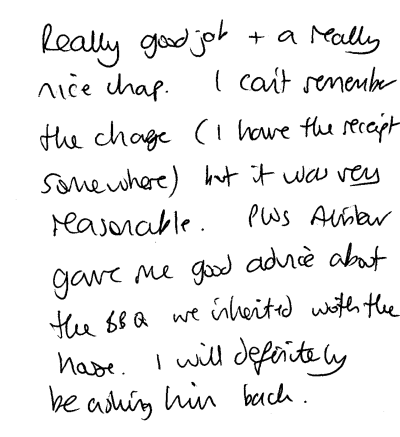 Really good job + a really
nice chap. I can't remember
the charge (I have the receipt
somewhere) but it was very
reasonable. Plus Alistair
gave me good advice about
the BBQ we inherited with the
house. I will definitely
be asking him back.